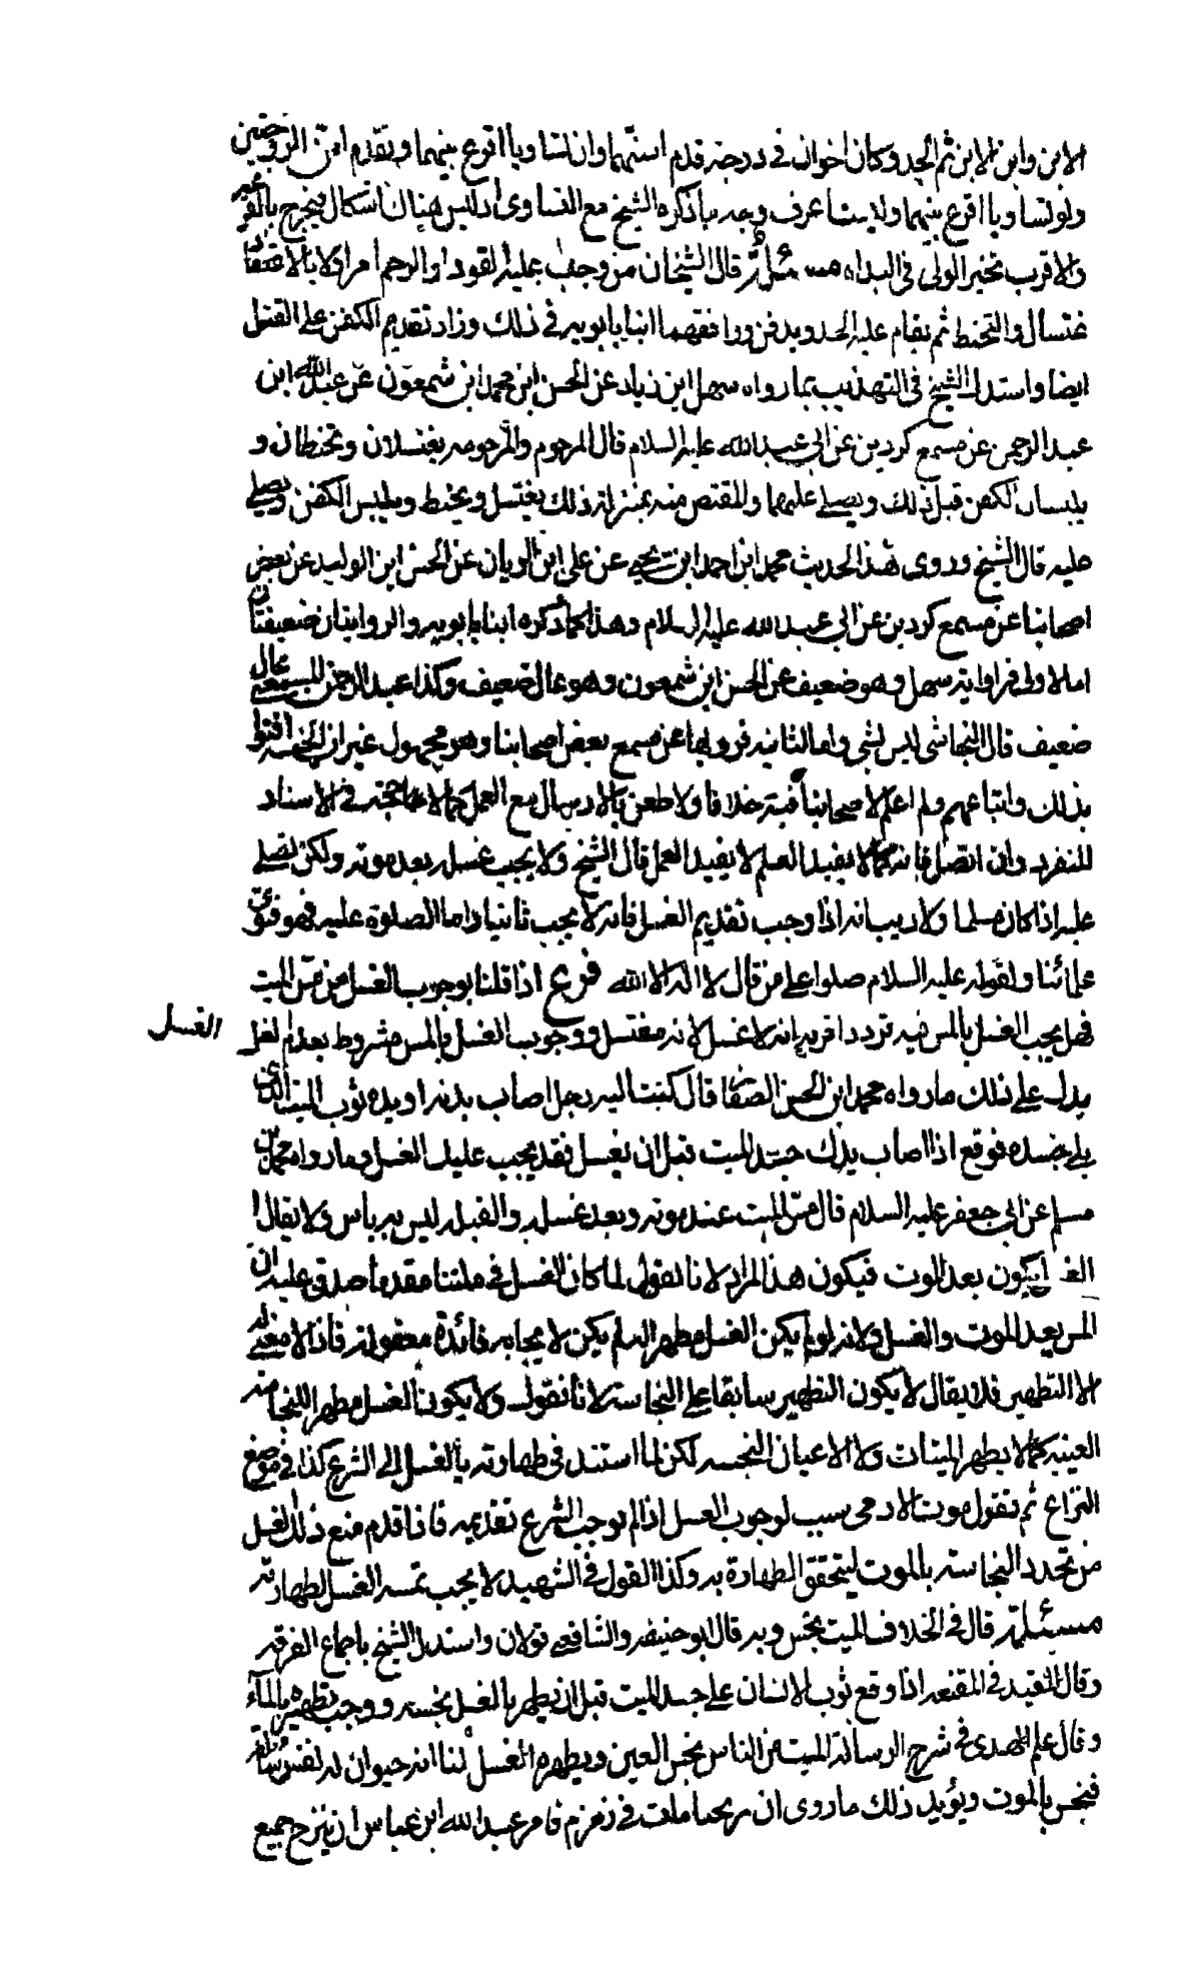 الابن وابن الابن ثم الجد وكان اخوان في درجة قدم اسنهما وان تساويا اقرع بينهما ويقدم امس الزوجتين
ولو تساويا اقرع بينهما ولا يعرف وجه ما ذكره الشيخ مع التساوى اذ ليس هناك اشكال فيخرج بالقرعة
والاقرب تخير الولى في البداه مسئلة قال الشيخان من وجب عليه القود او الرجم امر اولا بالاغتسال
والتحنط ثم يقام عليه الحد ويدفن ووافقهما ابنا بابويه في ذلك وزاد تقديم الكفن على القتل
ايضا واستدل الشيخ في التهذيب بما رواه سهل ابن زياد عن الحسن ابن محمد ابن شمعون عن عبد الله ابن
عبد الرحمن عن مسمع كردين عن ابى عبد الله عليه السلام قال المرجوم والمرجومه يغتسلان ويتحنطان و
يلبسان الكفن قبل ذلك ويصلى عليهما وللمقتص منه بمنزلة ذلك يغتسل ويتحنط ويلبس الكفن ويصلى
عليه قال الشيخ وروى هذا الحديث محمد ابن احمد ابن يحيى عن على ابن الريان عن الحسن ابن الوليد عن بعض
اصحابنا عن مسمع كردين عن ابى عبد الله عليه السلام وهذا كما ذكره ابنا بابويه والروايتان ضعيفتان
اما الاولى فراوايته سهل وهو ضعيف عن الحسن ابن شمعون وهو غال ضعيف وكذا عبد الرحمن المسمعى غال
ضعيف قال النجاشى ليس بشى واما الثانيه فرواها عن مسمع بعض اصحابنا وهو مجهول غير ان الخمسه افتوا
بذلك واتباعهم ولم اعلم لاصحابنا فيه خلافا ولا طعن بالارسال مع العمل كما لا حجة في الاسناد
للمنفرد وان اتصل فانه كما لا يفيد العلم لا يفيد العمل قال الشيخ ولا يجب غسله بعد موته ولكن يصلى
عليه اذا كان مسلما ولا ريب انه اذا وجب تقديم الغسل فانه لا يجب ثانيا واما الصلوة عليه فهو فتوى
علمائنا ولقوله عليه السلام صلوا على من قال لا اله الا الله فرع اذا قلنا بوجوب الغسل من مس الميت
فهل يجب الغسل بالمس فيه تردد اقربه انه لا غسل لانه مغتسل ووجوب الغسل بالمس مشروط بعدم الغسل
الغسل
يدل على ذلك ما رواه محمد ابن الحسن الصفار قال كتبت اليه رجل اصاب بدنه او يده ثوب الميت الذى
يلى جسده فوقع اذا اصاب يدك جسد الميت قبل ان يغسل فقد يجب عليك الغسل وما رواه محمد بن
مسلم عن ابى جعفر عليه السلام قال مس الميت عند موته وبعد غسله والقبله ليس به باس ولا يقال
يكون بعد الموت فيكون هذا المراد لانا نقول لما كان الغسل في ملتنا مقدما صدق عليه ان
المس بعد الموت والغسل ولانه لو لم يكن الغسل مطهرا له لم يكن لايجابه فائدة معقولة فاذا لا معنى له
الا التطهير فلا يقال لا يكون التطهير سابقا على النجاسة لانا نقول ولا يكون الغسل مطهرا للنجاسة
العينية كما لا يطهر الميتات ولا الاعيان النجسه لكن لما استند في طهارته بالغسل الى الشرع كذا في موضع
النزاع ثم نقول موت الادمى سبب لوجوب الغسل اذا لم يوجب الشرع تقديمه فاذا قدم منع ذلك الغسل
من تجدد النجاسة بالموت ليتحقق الطهارة به وكذا القول في الشهيد لا يجب بمسه الغسل لطهارته
مسئلة قال في الخلاف الميت نجس وبه قال ابو حنيفه وللشافعى قولان واستدل الشيخ باجماع الفرقه
وقال المفيد في المقنعه اذا وقع ثوب الانسان على جسد الميت قبل ان يطهر بالغسل نجسه ووجب تطهيره بالماء
وقال علم الهدى في شرح الرسالة الميت من الناس نجس العين ويطهره الغسل لنا انه حيوان له نفس سائلة
فينجس بالموت ويؤيد ذلك ما روى ان زنجيا مات في زمزم فامر عبد الله ابن عباس ان ينزح جميع